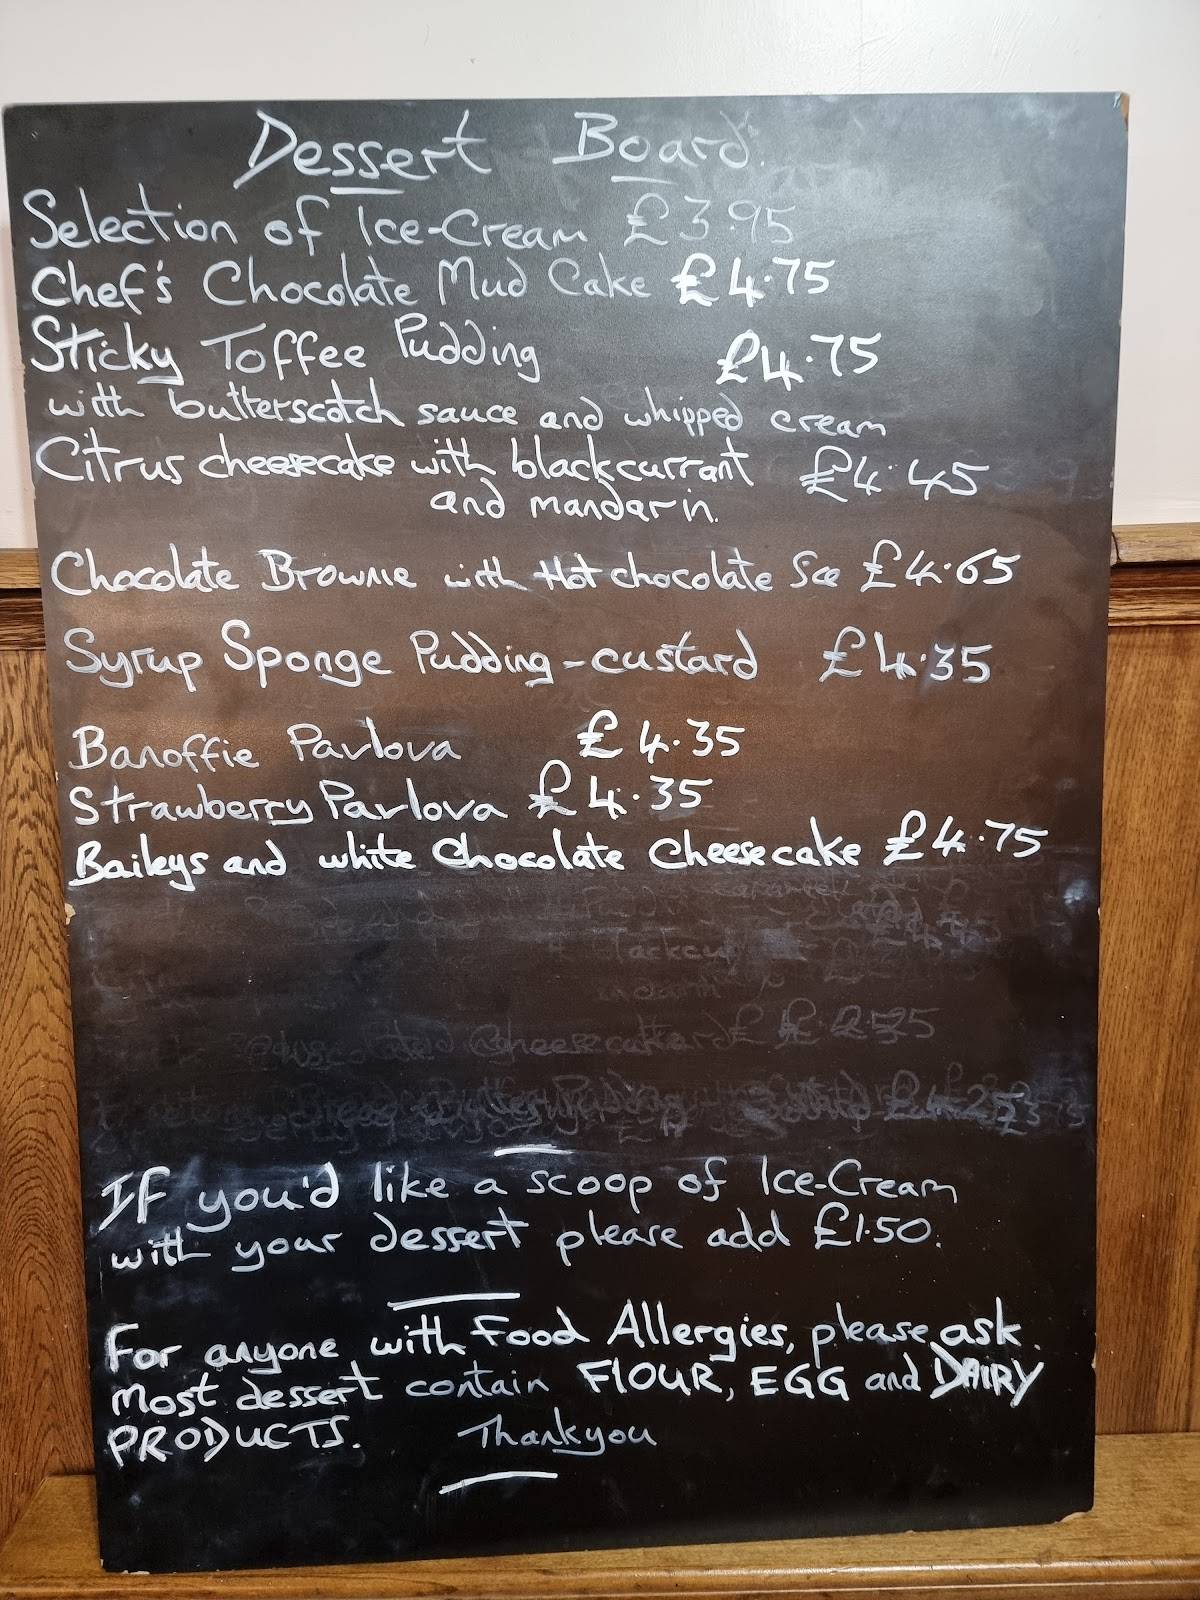 Dessert Board.
Selection of Ice-Cream £3.95
Chef's Chocolate Mud Cake £4.75
Sticky Toffee Pudding £4.75
with butterscotch sauce and whipped cream
Citrus cheesecake with blackcurrant £4.45
and mandarin.
Chocolate Brownie with Hot chocolate Sce £4.65
Syrup Sponge Pudding - custard £4.35
Banoffie Pavlova £4.35
Strawberry Pavlova £4.35
Baileys and white Chocolate Cheesecake £4.75
If you'd like a scoop of Ice-Cream
with your dessert please add £1.50.
For anyone with Food Allergies, please ask.
Most dessert contain FlOUR, EGG and DAIRY
PRODUCTS. Thankyou